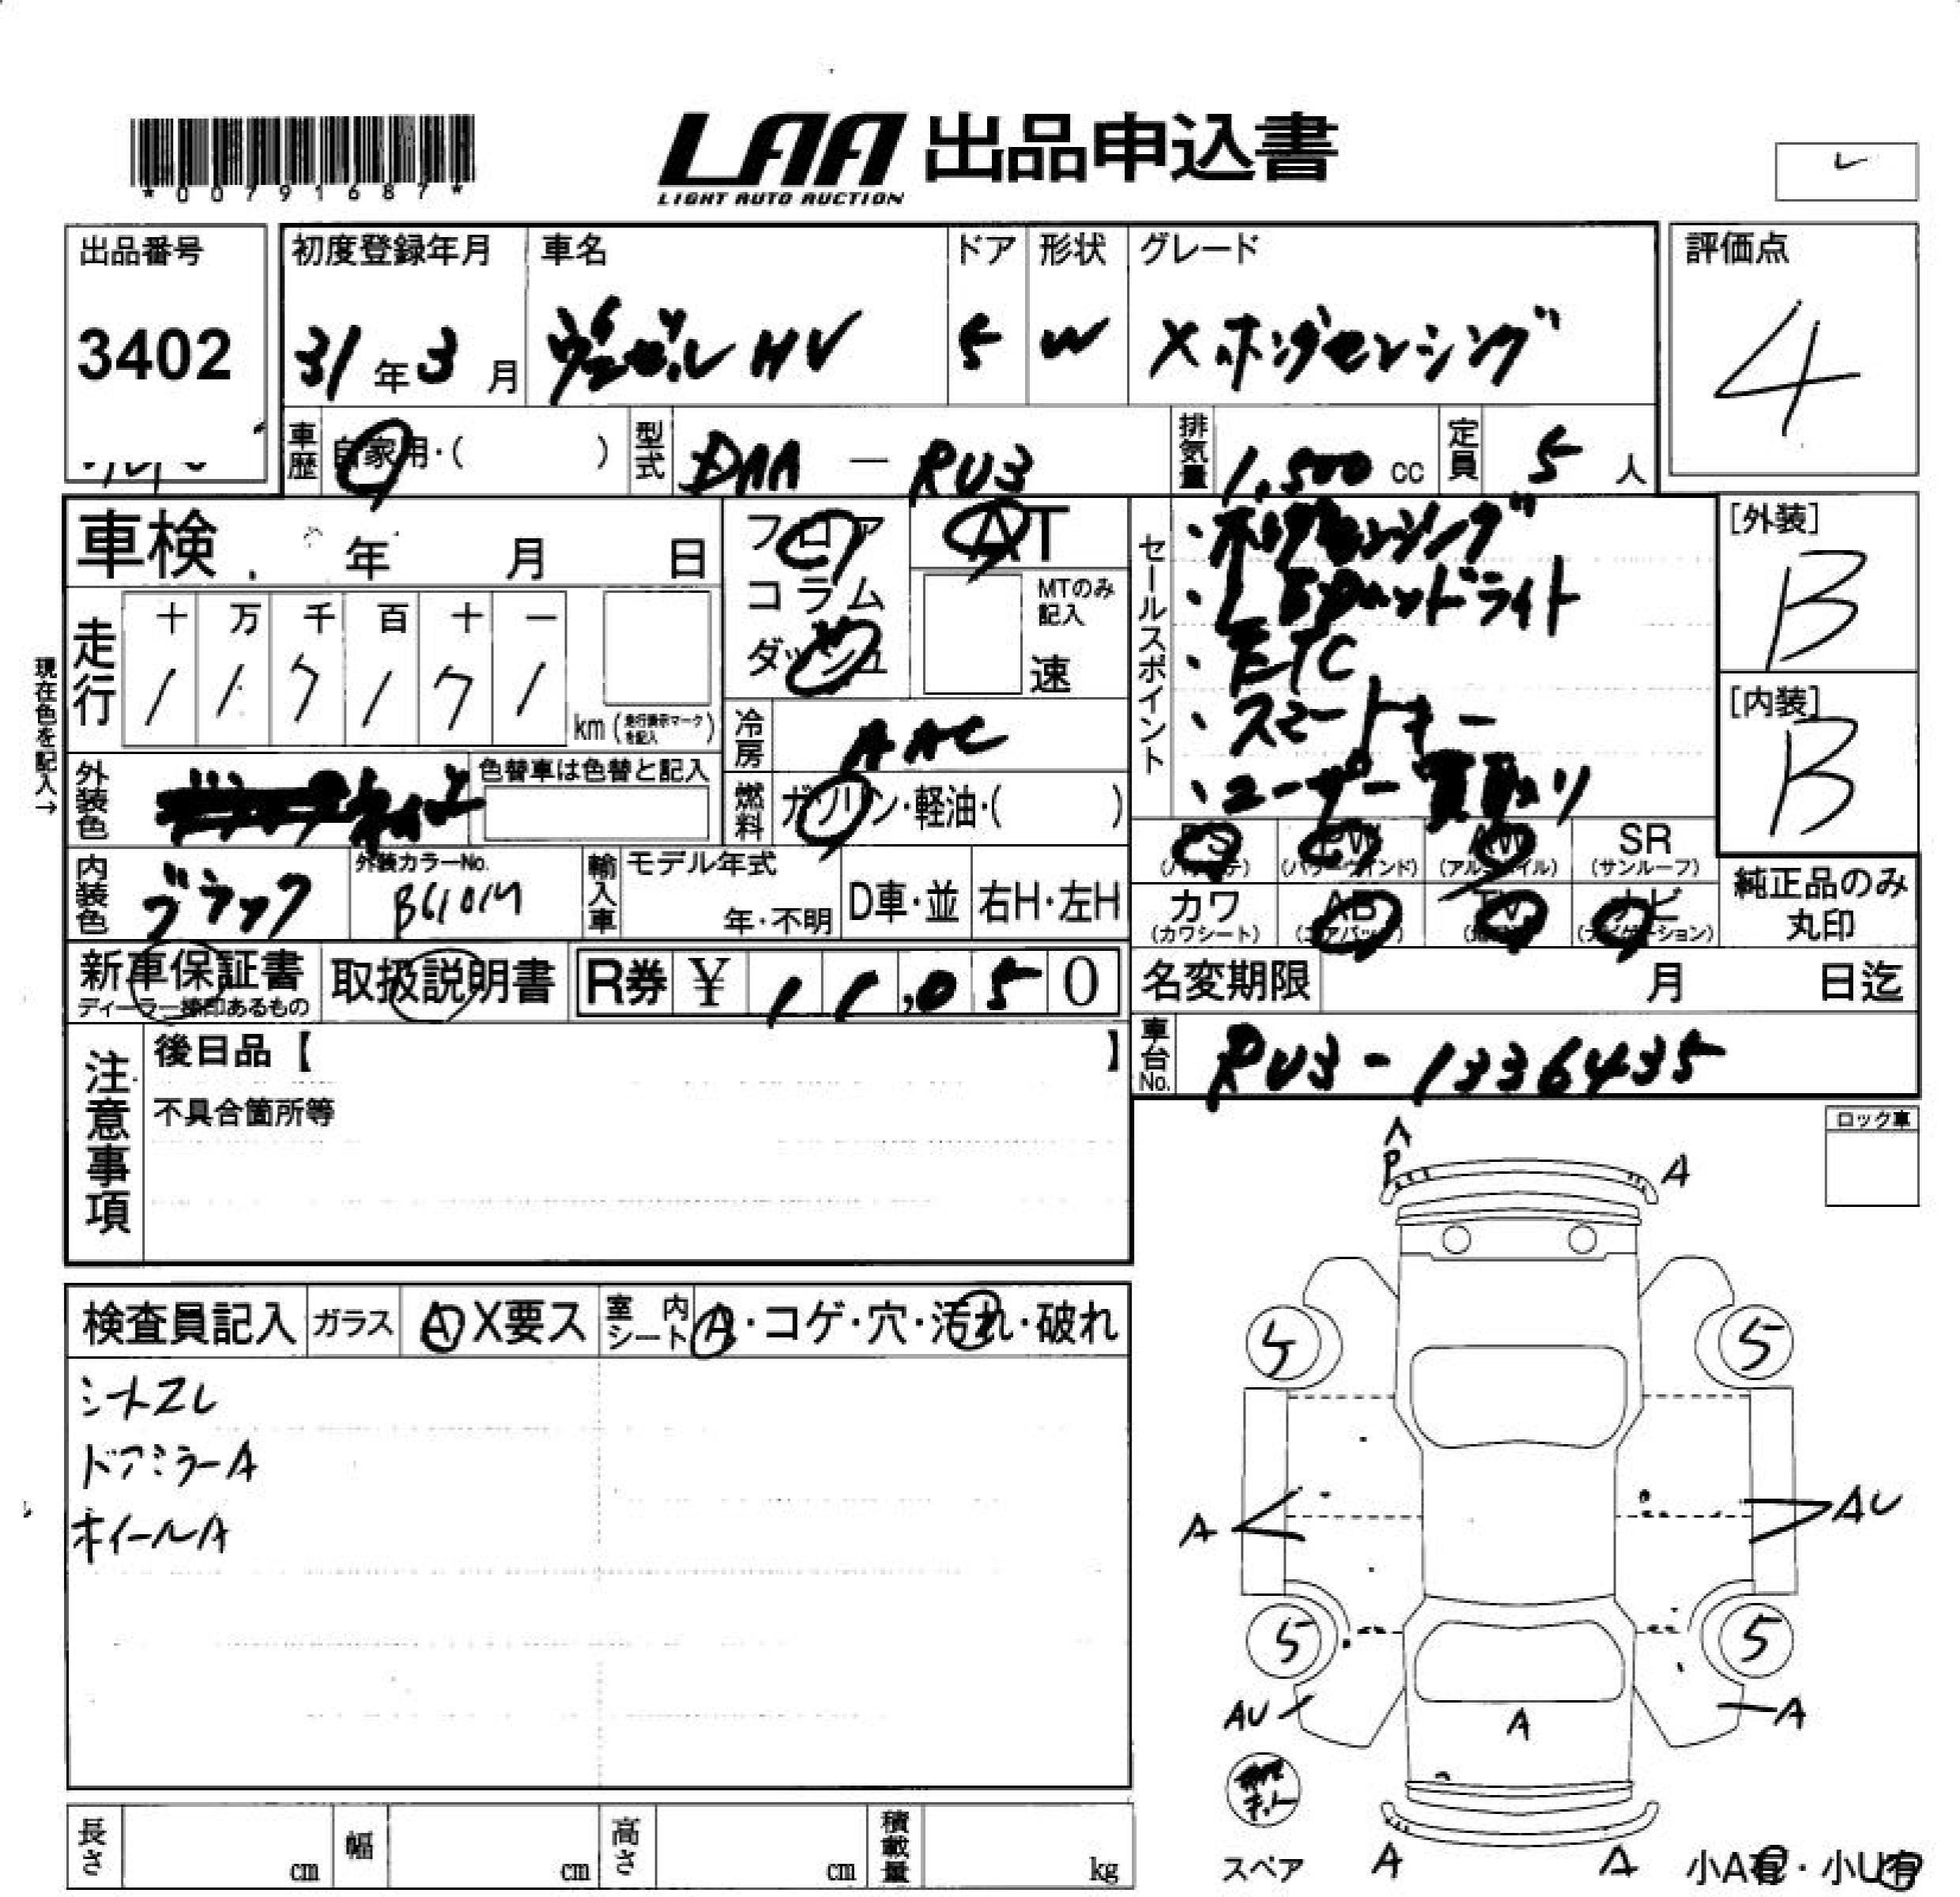 *00791687*
LAA 出品申込書
LIGHT AUTO AUCTION
レ
出品番号 初度登録年月 車名 ドア 形状 グレード 評価点
3402 31年3月 ヴェゼル HV 5 W Xホンダセンシング 4
車歴 自家用・( ) 型式 DAA － RU3 排気量 1,500 cc 定員 5 人
車検 年 月 日
フロア
コラム
ダッシュ
AT
MTのみ記入
速
セールスポイント
・ホンダセンシング
・LEDヘッドライト
・ETC
・スマートキー
・ユーザー買取り
[外装]
B
[内装]
B
現在色を記入→
走行 十 万 千 百 十 一
km (走行表示マークを記入)
冷房 AAC
外装色
色替車は色替と記入
燃料 ガソリン・軽油・( )
PS PW AW SR
(パワステ) (パワーウインド) (アルミホイル) (サンルーフ)
内装色 ブラック 外装カラーNo. 輸入車 モデル年式 年・不明 D車・並 右H・左H
カワ AB TV ナビ
(カワシート) (エアバッグ) (ナビゲーション)
純正品のみ丸印
新車保証書
ディーラー捺印あるもの
取扱説明書 R券 ¥ 11,050
名変期限 月 日迄
車台No. RU3-1336435
注意事項
後日品【 】
不具合箇所等
ロック車
検査員記入 ガラス A X要ス 室内シート A・コゲ・穴・汚れ・破れ
シートスレ
ドアミラーA
ホイールA
P A
5 5
A AU
5 5
AU A A
スペア A A 小A有・小U有
長さ cm 幅 cm 高さ cm 積載量 kg